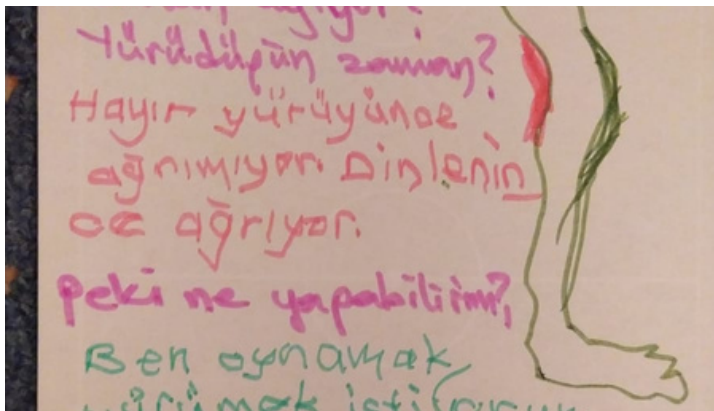 ağrıyor?
Yürüdüğün zaman?
Hayır yürüyünce
ağrımıyor. Dinlenin
ce ağrıyor.
Peki ne yapabilirim?
Ben oynamak,
yürümek isti